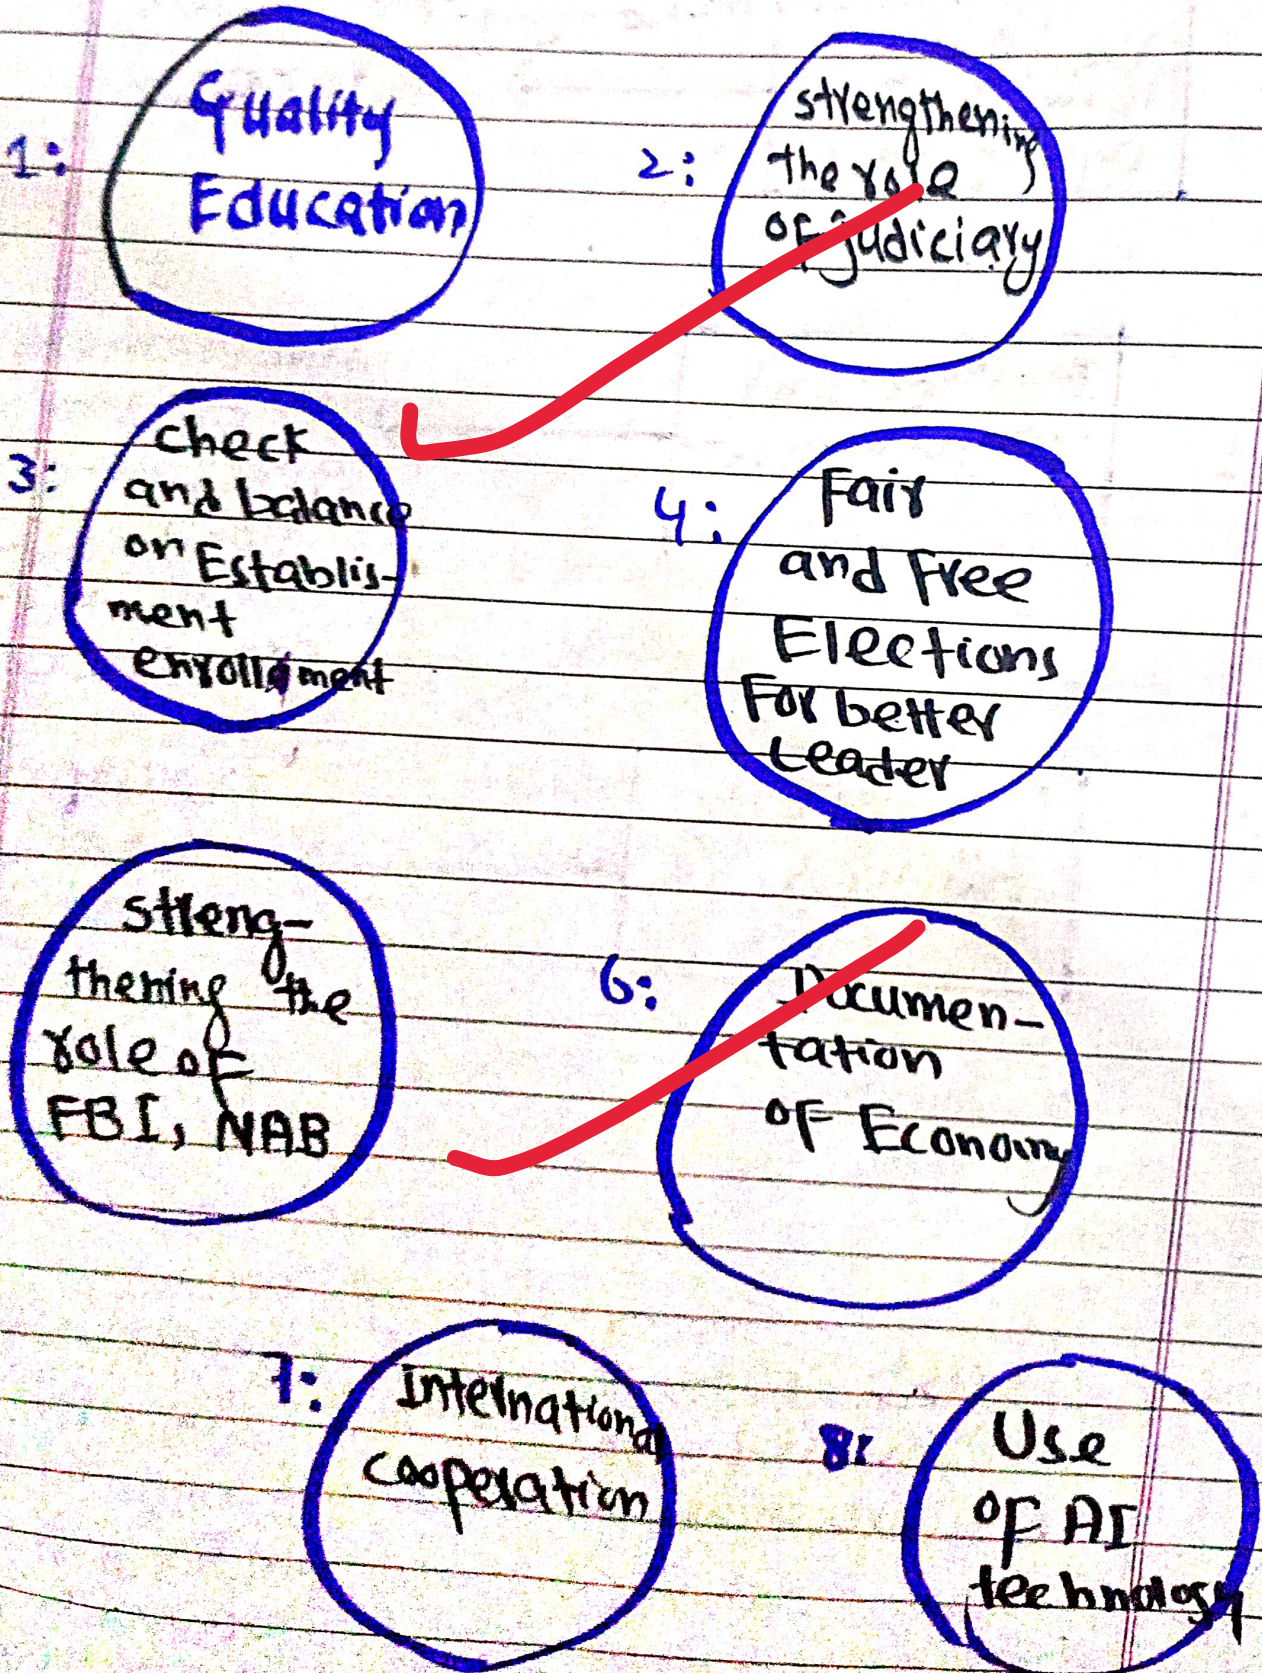 1:
Quality
Education
2:
strengthening
the role
of judiciary
3:
check
and balance
on Establis-
ment
enrollment
4:
Fair
and Free
Elections
For better
Leader
streng-
thening the
role of
FBI, NAB
6:
Documen-
tation
of Economy
7:
International
cooperation
8:
Use
of AI
technology